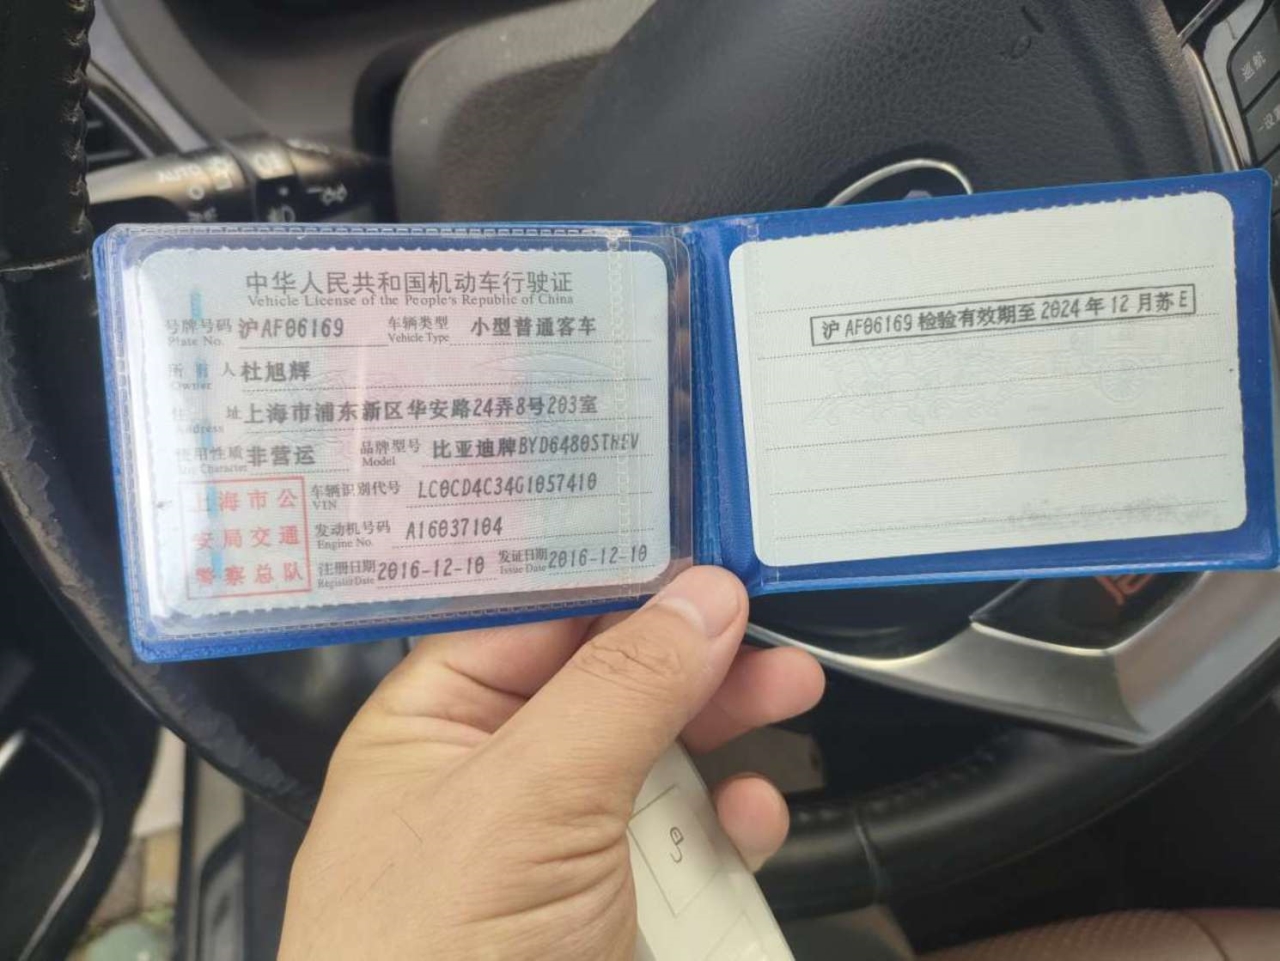 中华人民共和国机动车行驶证
Vehicle License of the People's Republic of China
号牌号码 沪AF06169 车辆类型 小型普通客车
Plate No. Vehicle Type
所有人 杜旭辉
Owner
住址 上海市浦东新区华安路24弄8号203室
Address
使用性质 非营运 品牌型号 比亚迪牌BYD6480STHEV
Use Character Model
车辆识别代号 LC0CD4C34G1057410
VIN
发动机号码 A16037104
Engine No.
注册日期 2016-12-10 发证日期 2016-12-10
Register Date Issue Date
上海市公
安局交通
警察总队
沪AF06169检验有效期至2024年12月苏E
AUTO
巡航